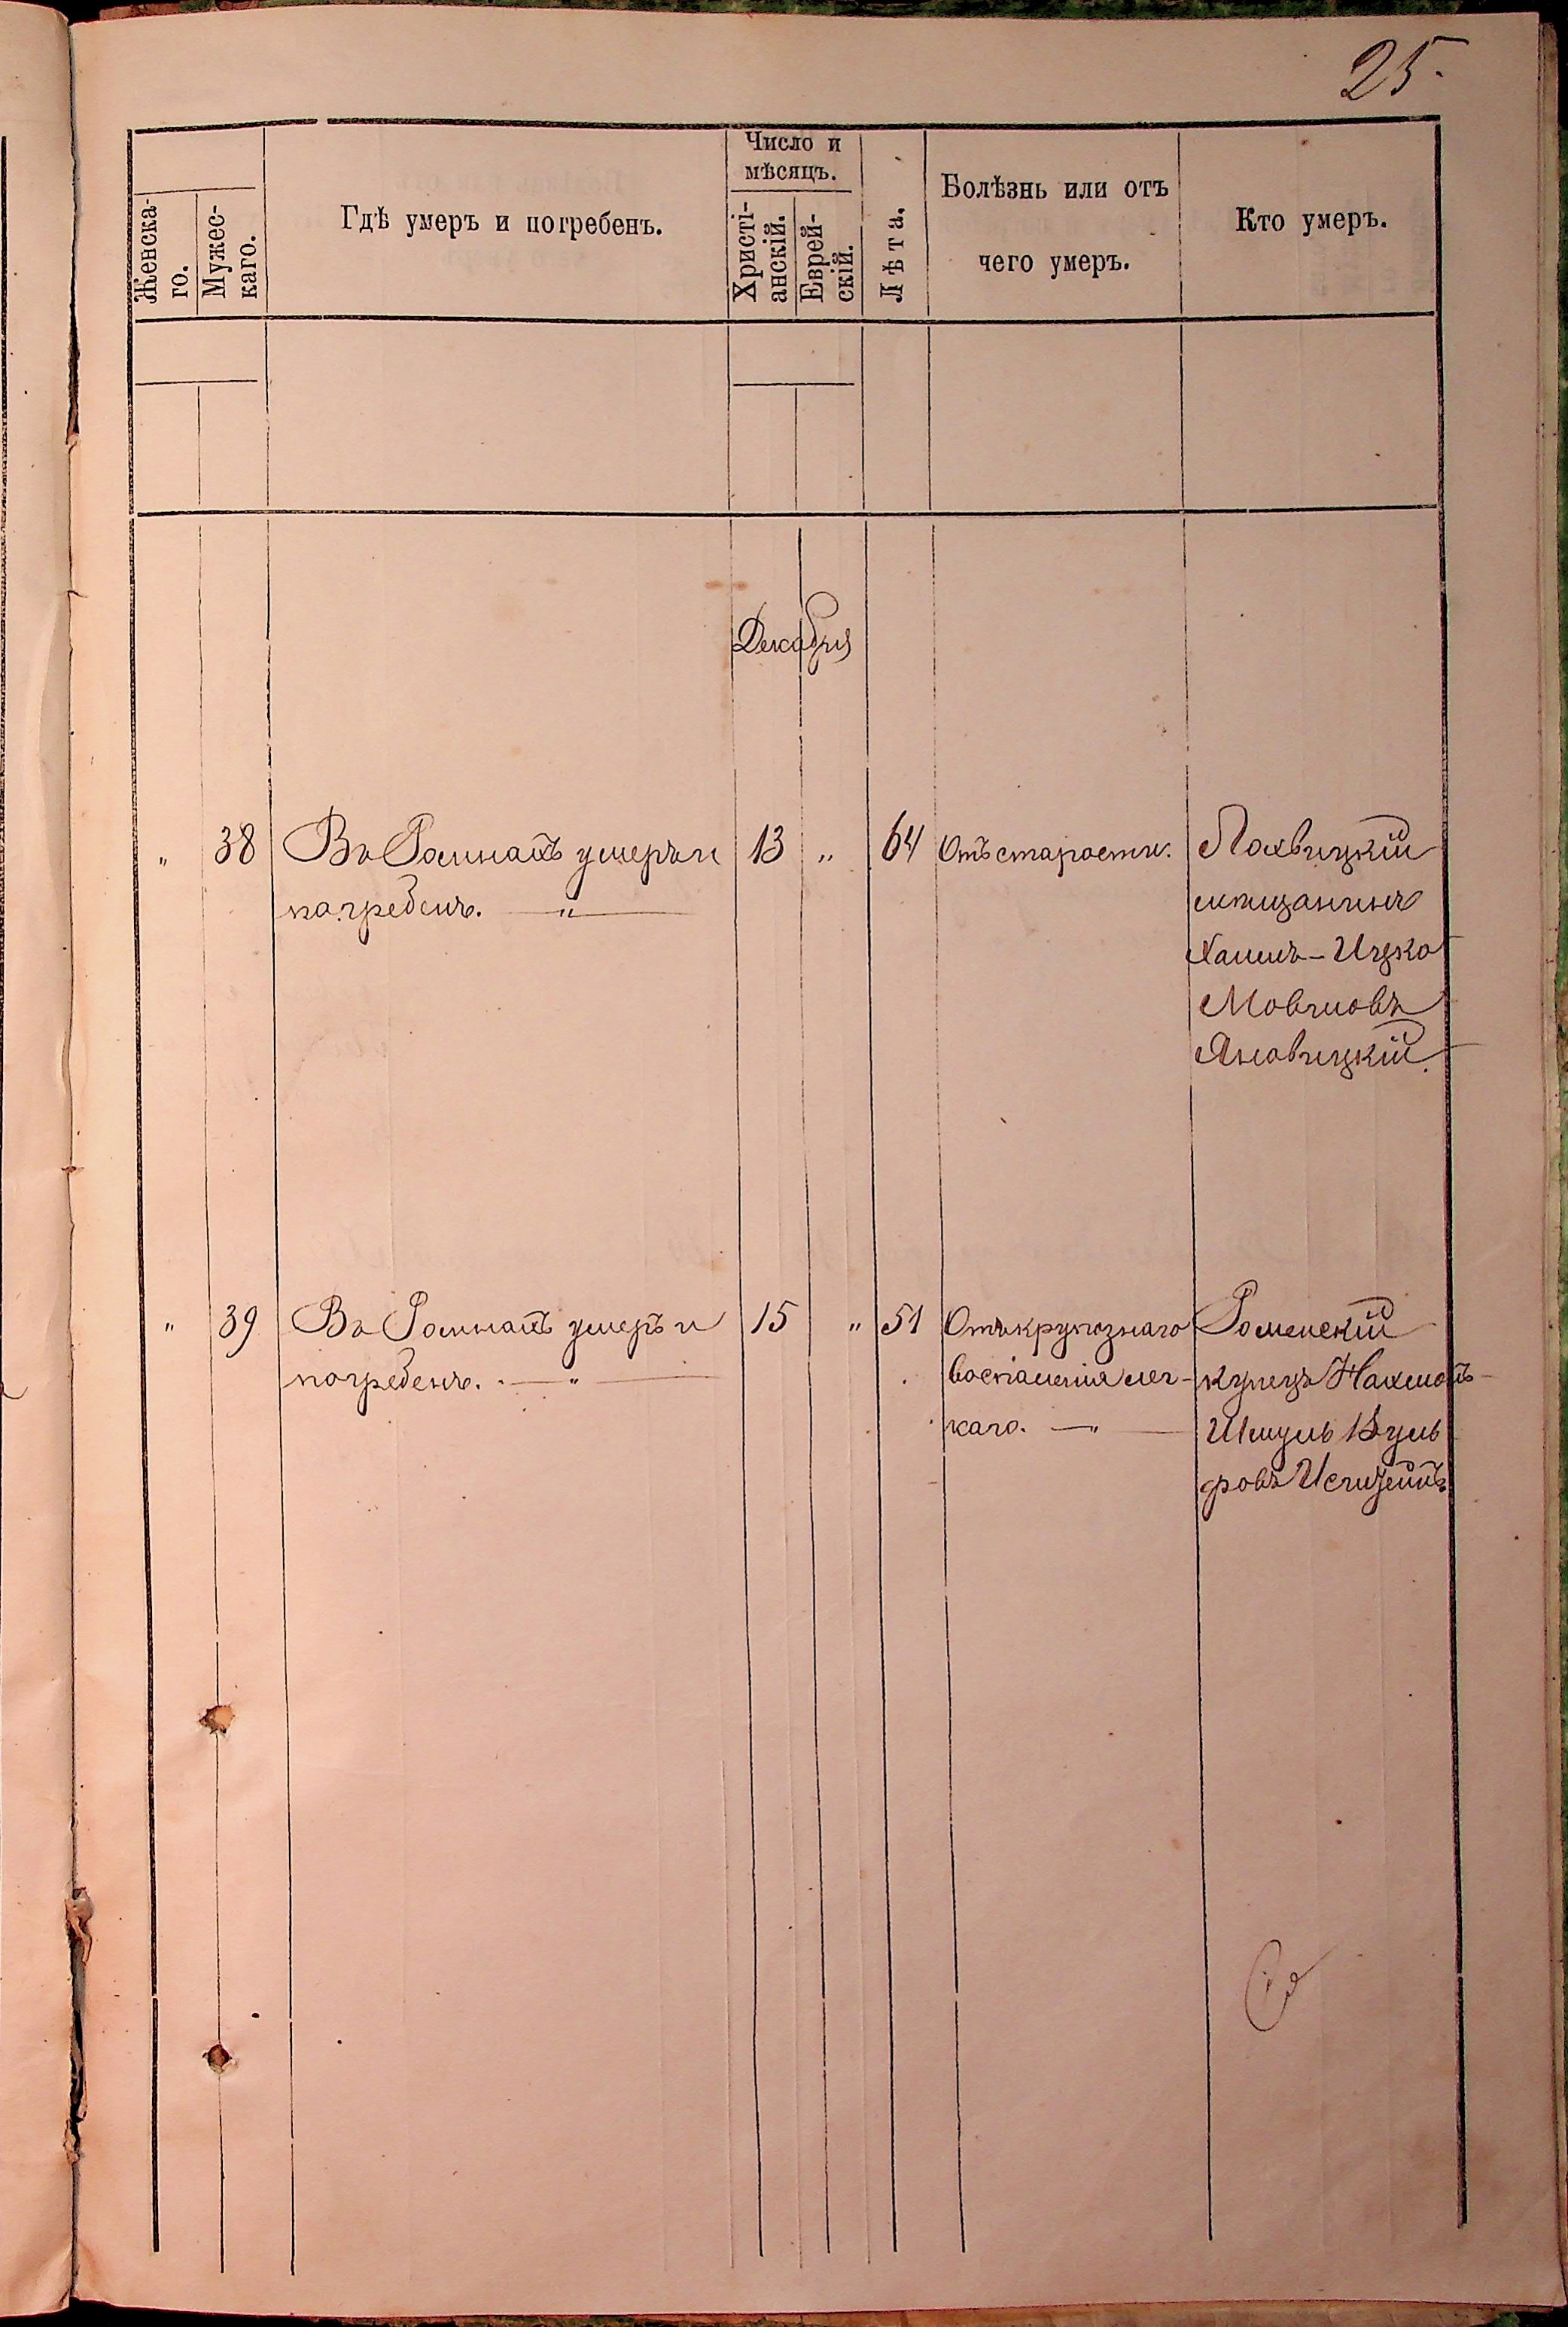 25.
Число и
мѣсяцъ.
Женска-
го.
Мужес-
каго.
Гдѣ умеръ и погребенъ.
Христі-
анскій.
Еврей-
скій.
Лѣта.
Болѣзнь или отъ
чего умеръ.
Кто умеръ.
Декабря
" 38 Въ Ромнахъ умеръ и 13 " 64 Отъ старости. Лохвицкій
погребенъ. — " — мѣщанинъ
Хаимъ-Ицко
Мовшовъ
Яновицкій.
" 39 Въ Ромнахъ умеръ и 15 " 51 Отъ крупознаго Роменскій
погребенъ. — " — воспаленія лег- купецъ
каго. — " —